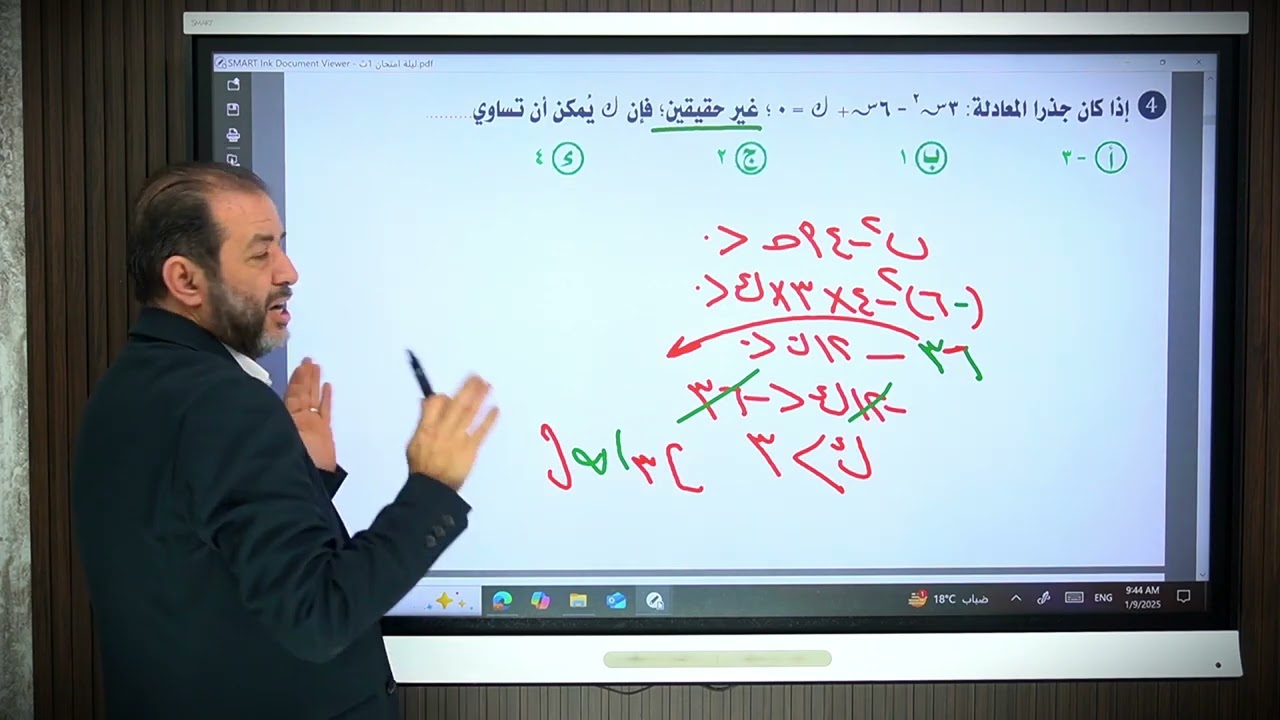 SMART
SMART Ink Document Viewer - ليلة امتحان 1ث.pdf
4 إذا كان جذرا المعادلة: ٣س² - ٦س + ك = ٠ ؛ غير حقيقيين؛ فإن ك يُمكن أن تساوي ..........
أ -٣ ب ١ ج ٢ د ٤
ب² - ٤أجـ < ٠
(-٦)² - ٤ × ٣ × ك < ٠
٣٦ - ١٢ك < ٠
-١٢ك < -٣٦
ك > ٣ ]٣، ∞[
18°C ضباب ENG 9:44 AM
1/9/2025